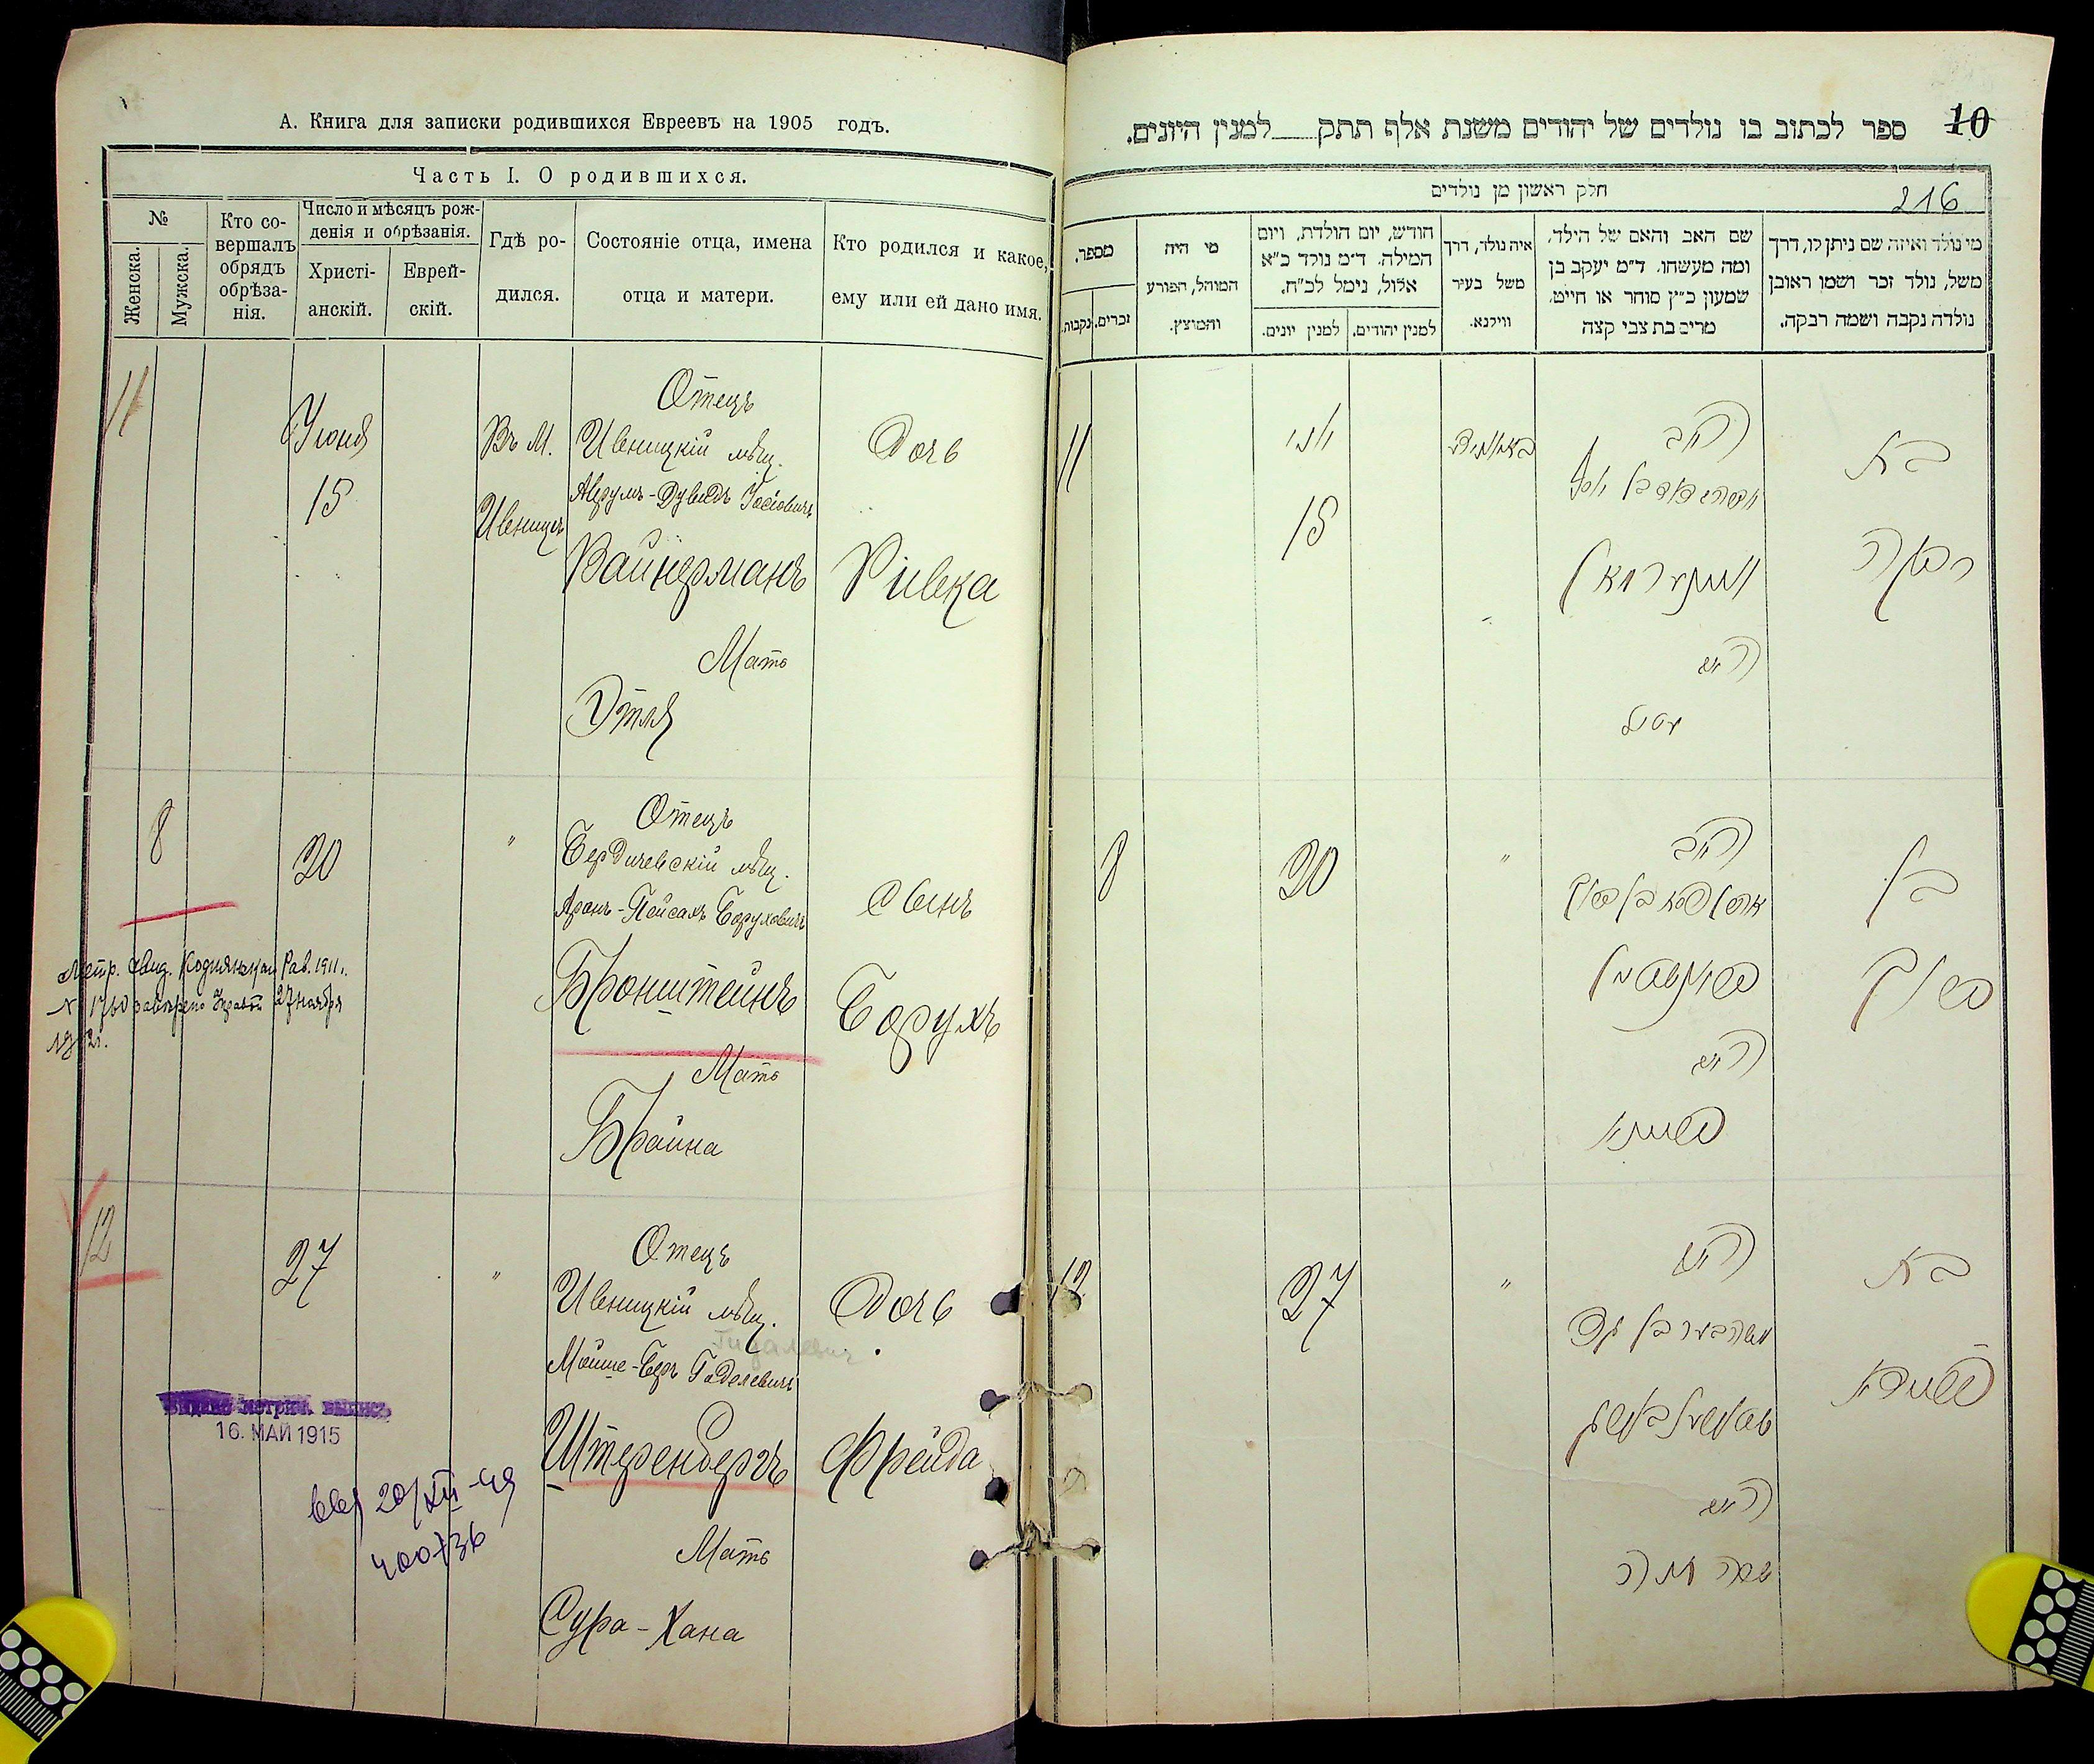 А. Книга для записки родившихся Евреевъ на 1905 годъ.
Часть I. О родившихся.
№
Женска.
Мужска.
Кто со-
вершалъ
обрядъ
обрѣза-
нія.
Число и мѣсяцъ рож-
денія и обрѣзанія.
Христі-
анскій.
Еврей-
скій.
Гдѣ ро-
дился.
Состояніе отца, имена
отца и матери.
Кто родился и какое,
ему или ей дано имя.
11
Іюня
15
Въ М.
Ивницѣ
Отецъ
Ивницкій мѣщ.
Аврумъ-Дувидъ Іосіовичъ
Вайнерманъ
Мать
Этля
Дочь
Ривка
8
20
"
Отецъ
Бердичевскій мѣщ.
Аронъ-Пейсахъ Боруховичъ
Бронштейнъ
Мать
Брайна
Сынъ
Борухъ
Метр. свид. Рав. 1911 г.
27 ноября
12
27
"
Отецъ
Ивницкій мѣщ.
Гидалевич
Мойше-Беръ Гаделевичъ
Штеренбергъ
Мать
Сура-Хана
Дочь
Фрейда
16. МАЙ 1915
20/XII-49
400736
10
ספר לכתוב בו נולדים של יהודים משנת אלף תתק למנין היונים.
חלק ראשון מן נולדים
216
מספר.
נקבות.
זכרים.
מי היה
המוהל, הפורע
והמוצץ.
חודש, יום הולדת, ויום
המילה. ד״מ נולד כ״א
אלול, נימל לכ״ח.
למנין יונים.
למנין יהודים.
איה נולד, דרך
משל בעיר
ווילנא.
שם האב והאם של הילד,
ומה מעשהו. ד״מ יעקב בן
שמעון כ״ץ סוחר או חייט,
מרים בת צבי קצה
מי נולד ואיזה שם ניתן לו, דרך
משל, נולד זכר ושמו ראובן
נולדה נקבה ושמה רבקה.
11
יוני
15
האב
וויינערמאן
האם
עטיל
בת
רבקה
8
20
"
האב
בראנשטיין
האם
בריינא
בן
ברוך
12
27
"
האב
שטערנבערג
האם
שרה חנה
בת
פריידא